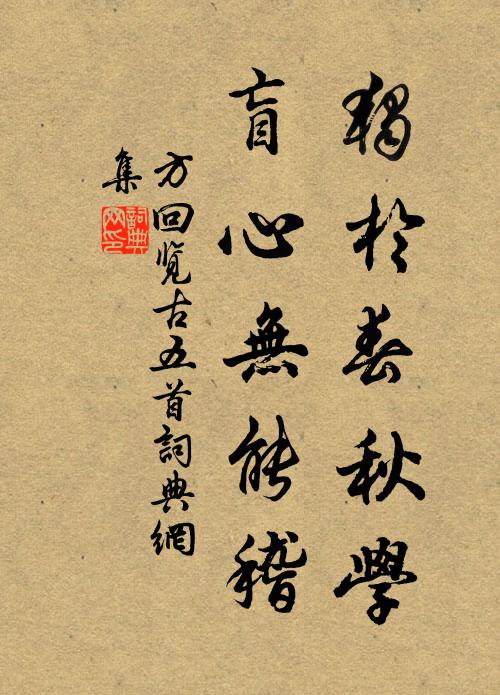 獨於春秋學
盲心無能稽
方回览古五首詞典網
集
詞典网印